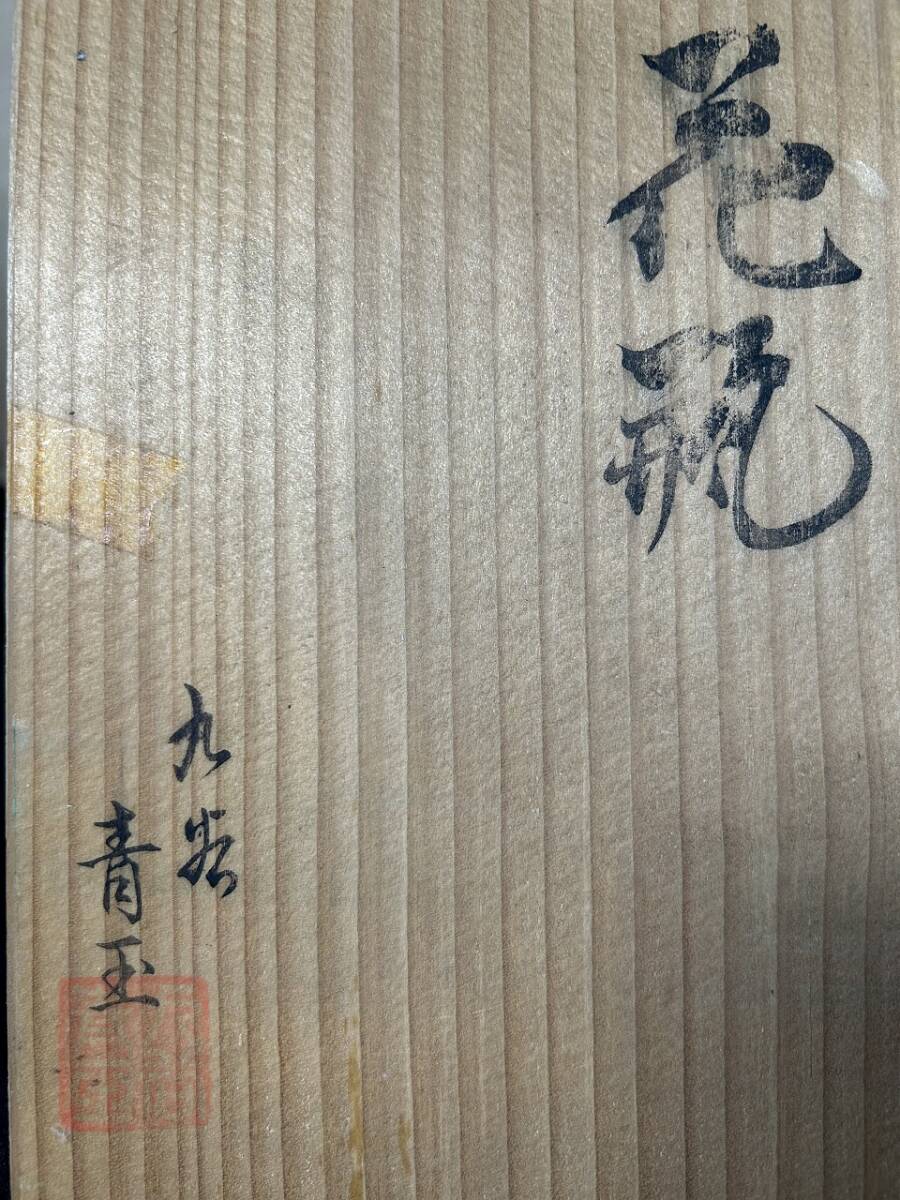 花瓶
九谷
青玉